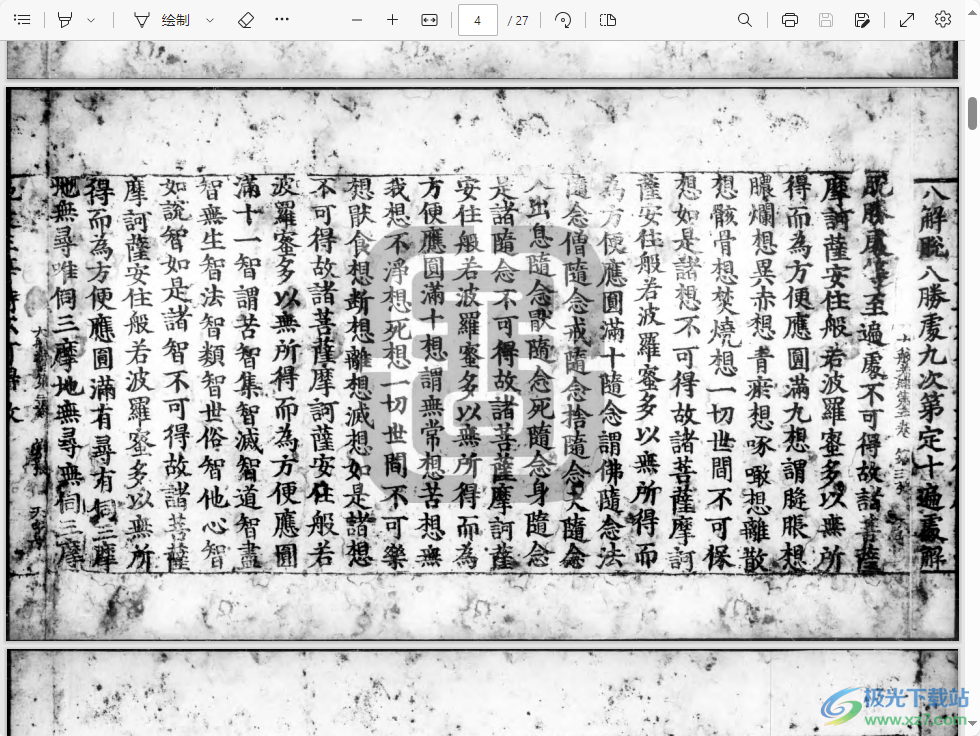 绘制
4
/ 27
八解脫八勝處九次第定十遍處解
脫勝處等至遍處不可得故諸菩薩
摩訶薩安住般若波羅蜜多以無所
得而為方便應圓滿九想謂膖脹想
膿爛想異赤想青瘀想啄噉想離散
想骸骨想焚燒想一切世間不可保
想如是諸想不可得故諸菩薩摩訶
薩安住般若波羅蜜多以無所得而
為方便應圓滿十隨念謂佛隨念法
隨念僧隨念戒隨念捨隨念天隨念
入出息隨念厭隨念死隨念身隨念
是諸隨念不可得故諸菩薩摩訶薩
安住般若波羅蜜多以無所得而為
方便應圓滿十想謂無常想苦想無
我想不淨想死想一切世間不可樂
想厭食想斷想離想滅想如是諸想
不可得故諸菩薩摩訶薩安住般若
波羅蜜多以無所得而為方便應圓
滿十一智謂苦智集智滅智道智盡
智無生智法智類智世俗智他心智
如說智如是諸智不可得故諸菩薩
摩訶薩安住般若波羅蜜多以無所
得而為方便應圓滿有尋有伺三摩
地無尋唯伺三摩地無尋無伺三摩
极光下载站
www.xz7.com